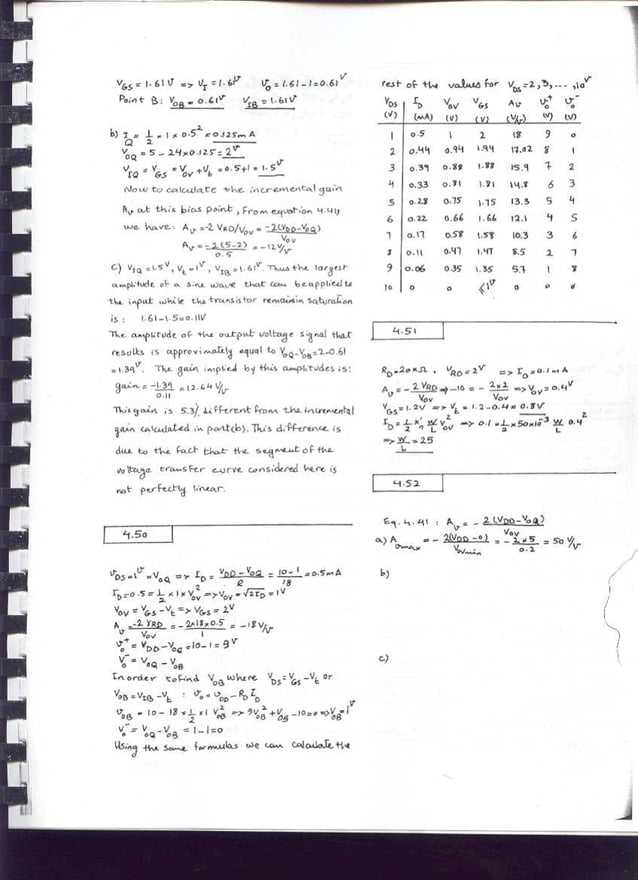 V_GS = 1.61V => V_I = 1.61V V_O = 1.61 - 1 = 0.61V
Point B: V_OB = 0.61V V_IB = 1.61V
b) I_Q = 1/2 × 1 × 0.5² = 0.125mA
V_OQ = 5 - 24×0.125 = 2V
V_IQ = V_GS = V_OV + V_t = 0.5+1 = 1.5V
Now to calculate the incremental gain
A_v at this bias point, From equation 4.41,
we have: A_v = -2 V_RD/V_OV = -2(V_DD-V_OQ)/V_OV
A_v = -2(5-2)/0.5 = -12V/V
C) V_IQ = 1.5V, V_t = 1V, V_IB = 1.61V. Thus the largest
amplitude of a sine wave that can be applied to
the input while the transistor remainin saturation
is: 1.61-1.5=0.11V
The amplitude of the output voltage signal that
results is approximately equal to V_OQ-V_OB=2-0.61
=1.39V. The gain implied by this amplitudes is:
gain = -1.39/0.11 = 12.64 V/V
This gain is 5.3% different from the incremental
gain calculated in part(b). This difference is
due to the fact that the segment of the
voltage transfer curve considered here is
not perfectly linear.
4.50
V_DS = 1V = V_OQ => I_D = (V_DD - V_OQ)/R = (10-1)/18 = 0.5mA
I_D = 0.5 = 1/2 × 1 × V_OV² => V_OV = √2I_D = 1V
V_OV = V_GS - V_t => V_GS = 2V
A_v = -2 V_RD/V_OV = -2×18×0.5/1 = -18V/V
v_o⁺ = V_DD - V_OQ = 10-1 = 9V
v_o⁻ = V_OQ - V_OB
In order to find V_OB where V_DS = V_GS - V_t or
V_OB = V_IB - V_t : v_o = v_DD - R_D I_D
v_OB = 10 - 18 × 1/2 × 1 V_OB² => 9V_OB² + V_OB - 10 = 0 => V_OB = 1V
v_o⁻ = V_OQ - V_OB = 1-1=0
Using the same formulas we can calculate the
rest of the values for V_DS = 2, 3, ..., 10V
V_DS I_D V_OV V_GS A_v v_o⁺ v_o⁻
(V) (mA) (V) (V) (V/V) (V) (V)
1 0.5 1 2 18 9 0
2 0.44 0.94 1.94 17.02 8 1
3 0.39 0.88 1.88 15.9 7 2
4 0.33 0.81 1.81 14.8 6 3
5 0.28 0.75 1.75 13.3 5 4
6 0.22 0.66 1.66 12.1 4 5
7 0.17 0.58 1.58 10.3 3 6
8 0.11 0.47 1.47 8.5 2 7
9 0.06 0.35 1.35 5.7 1 8
10 0 0 1V 0 0 0
4.51
R_D = 20kΩ, V_RD = 2V => I_D = 0.1mA
A_v = -2 V_RD/V_OV => -10 = -2×2/V_OV => V_OV = 0.4V
V_GS = 1.2V => V_t = 1.2-0.4 = 0.8V
I_D = 1/2 k'_n W/L V_OV² => 0.1 = 1/2 × 50×10⁻³ W/L 0.4²
=> W/L = 25
4.52
Eq. 4.41 : A_v = -2(V_DD-V_OQ)/V_OV
a) A_vmax = -2(V_DD-0)/V_OVmin = -2×5/0.2 = 50 V/V
b)
c)